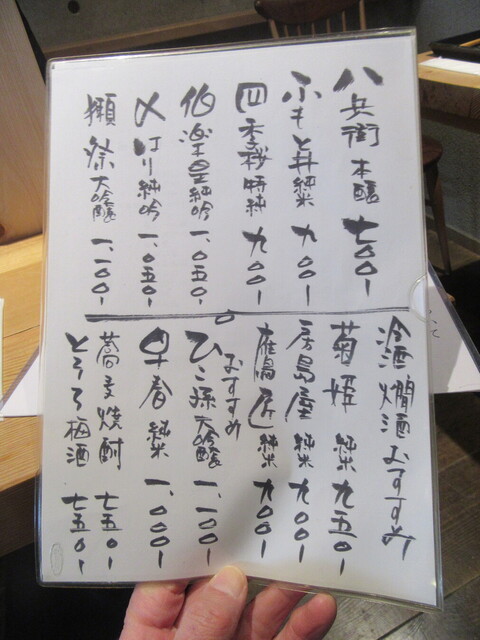 八兵衛 本醸 七〇〇ー
ふもと井 純米 九〇〇ー
四季桜 特純 九〇〇ー
伯楽星 純吟 一、〇五〇ー
〆はり 純吟 一、〇五〇ー
獺祭 大吟醸 一、一〇〇ー
冷酒 燗酒 おすすめ
菊姫 純米 九五〇ー
房島屋 純米 九〇〇ー
鷹匠 純米 九〇〇ー
おすすめ
ひこ孫 大吟醸 一、一〇〇ー
早春 純米 一、〇〇〇ー
蕎麦焼酎 七五〇ー
とろろ梅酒 七五〇ー